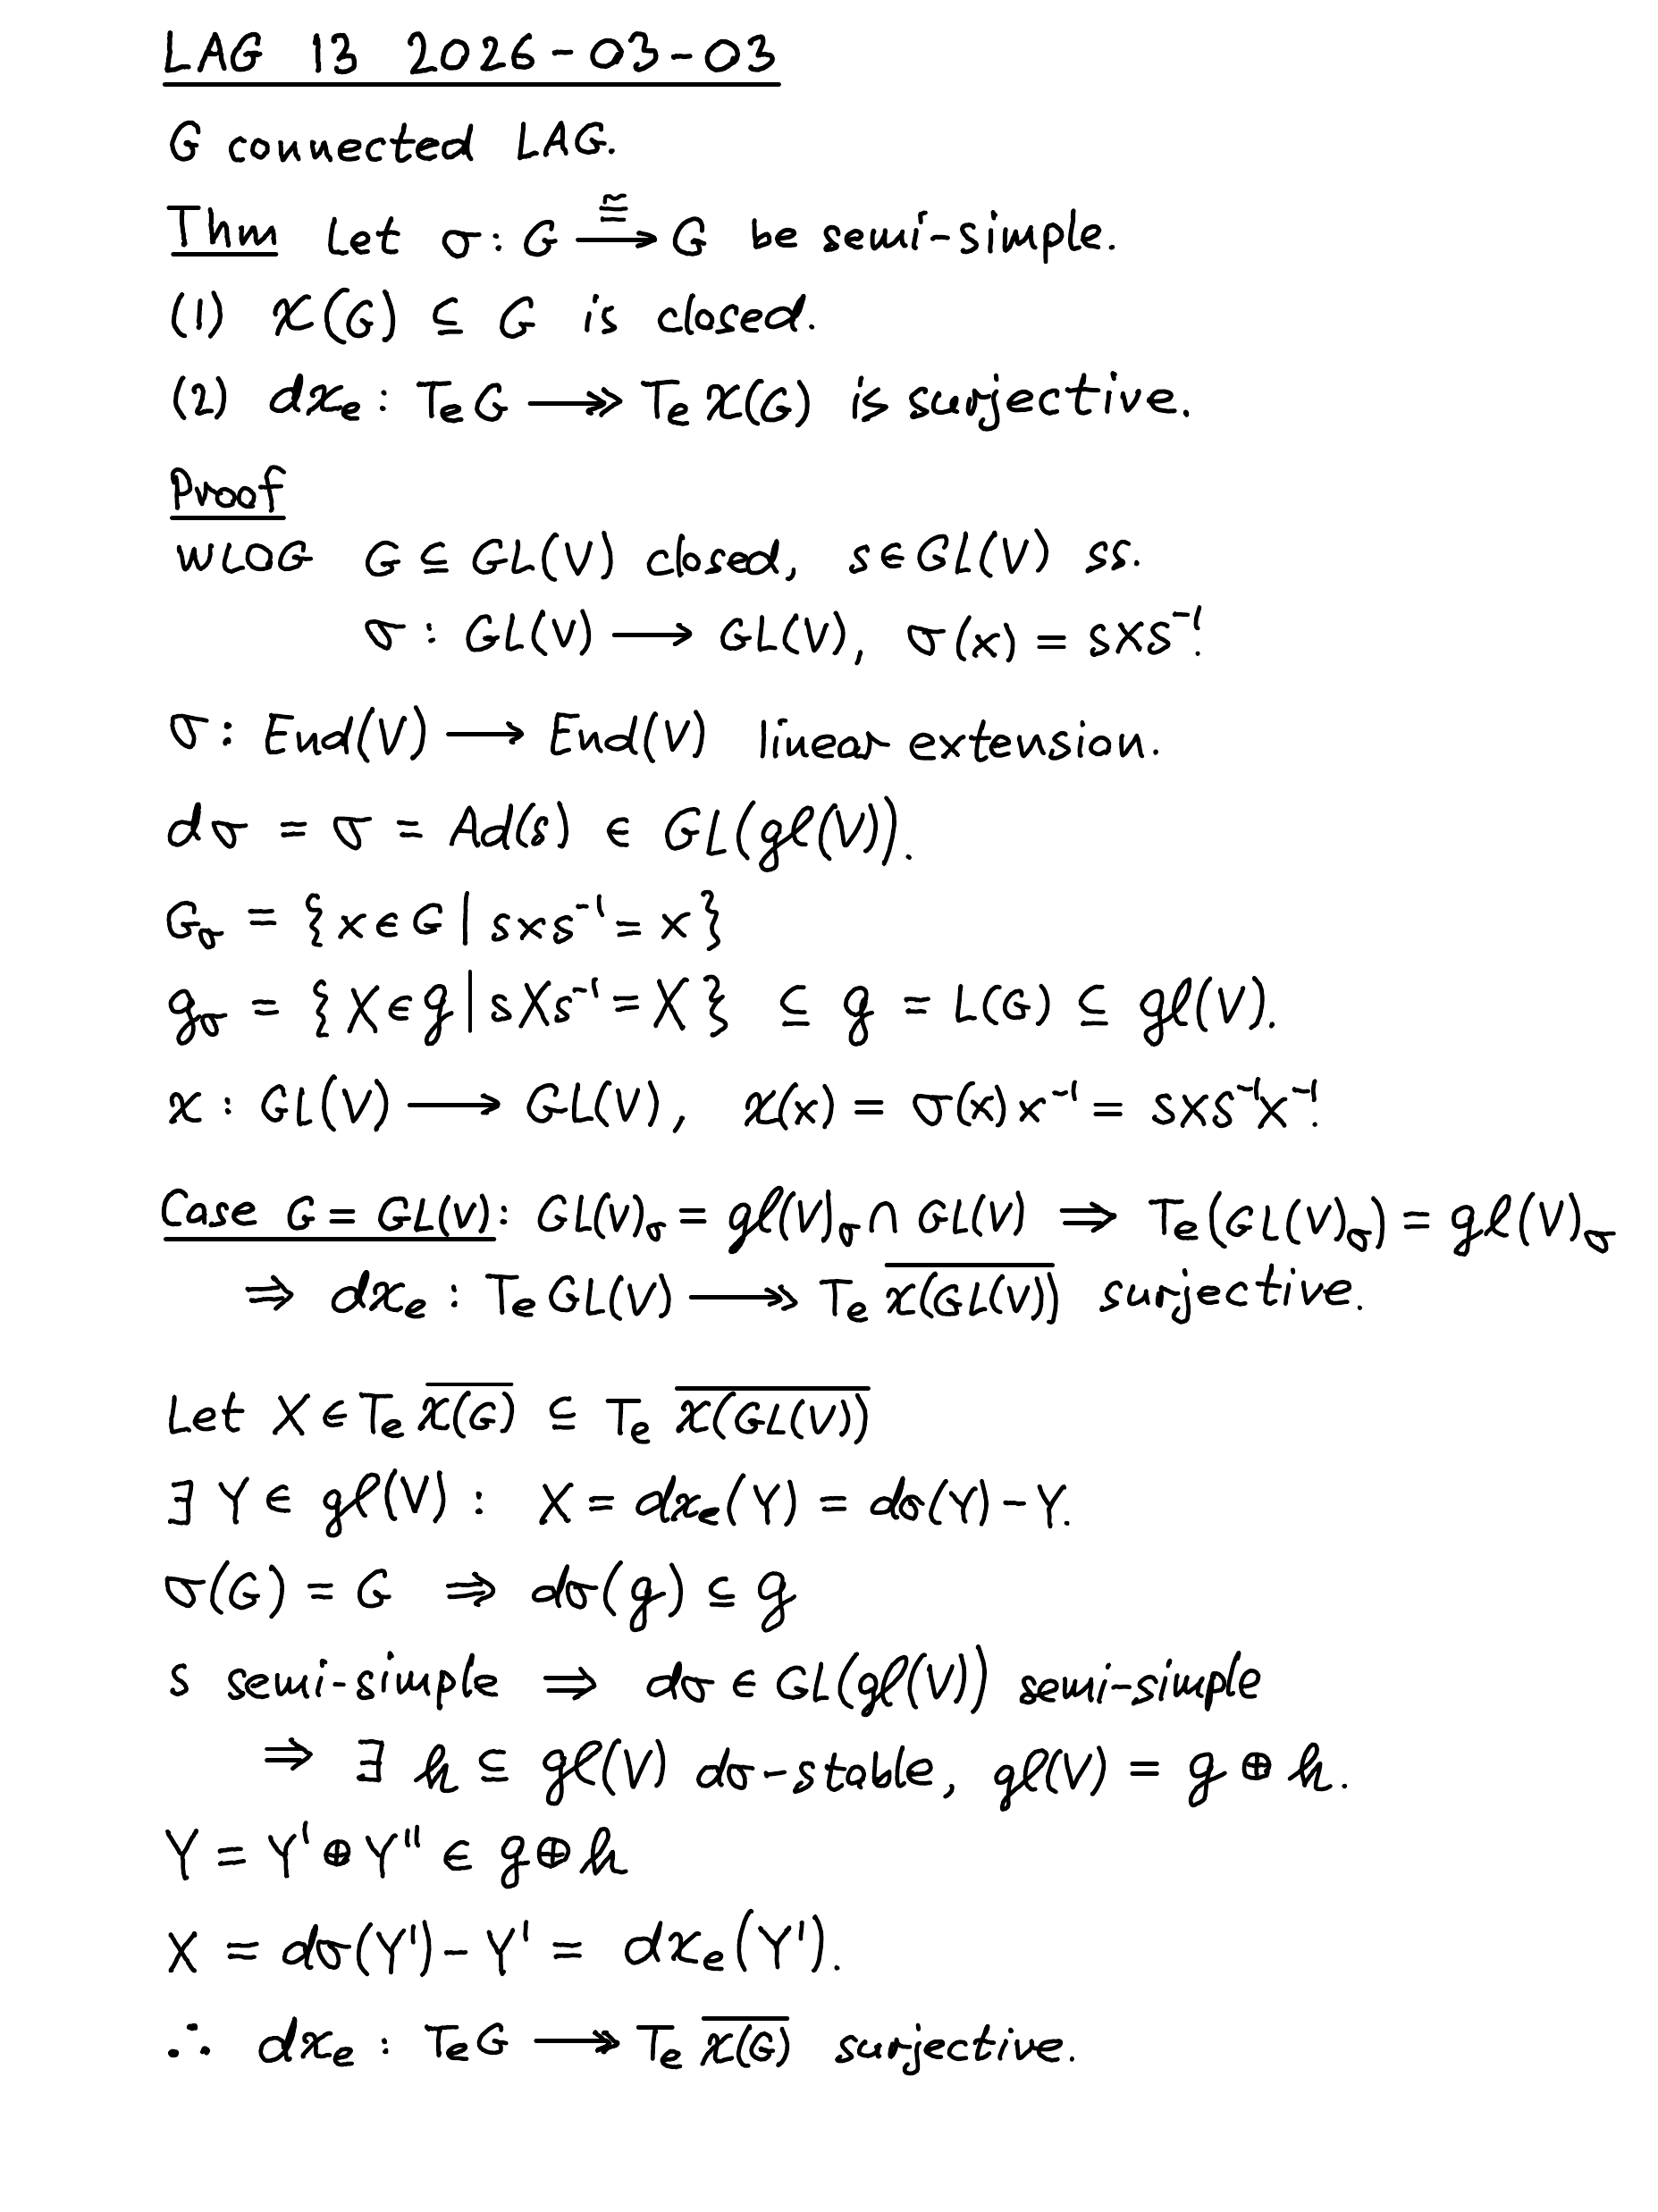 LAG 13 2026-03-03
G connected LAG.
Thm Let σ: G ≅⟶ G be semi-simple.
(1) χ(G) ⊆ G is closed.
(2) dχₑ : TₑG ↠ Tₑ χ(G) is surjective.
Proof
WLOG G ⊆ GL(V) closed, s ∈ GL(V) ss.
σ : GL(V) ⟶ GL(V), σ(x) = sxs⁻¹.
σ : End(V) ⟶ End(V) linear extension.
dσ = σ = Ad(s) ∈ GL(gl(V)).
G_σ = {x ∈ G | sxs⁻¹ = x}
g_σ = {X ∈ g | sXs⁻¹ = X} ⊆ g = L(G) ⊆ gl(V).
χ : GL(V) ⟶ GL(V), χ(x) = σ(x)x⁻¹ = sxs⁻¹x⁻¹.
Case G = GL(V): GL(V)_σ = gl(V)_σ ∩ GL(V) ⇒ Tₑ(GL(V)_σ) = gl(V)_σ
⇒ dχₑ : TₑGL(V) ↠ Tₑ \overline{χ(GL(V))} surjective.
Let X ∈ Tₑ \overline{χ(G)} ⊆ Tₑ \overline{χ(GL(V))}
∃ Y ∈ gl(V) : X = dχₑ(Y) = dσ(Y) − Y.
σ(G) = G ⇒ dσ(g) ⊆ g
s semi-simple ⇒ dσ ∈ GL(gl(V)) semi-simple
⇒ ∃ h ⊆ gl(V) dσ-stable, gl(V) = g ⊕ h.
Y = Y' ⊕ Y'' ∈ g ⊕ h
X = dσ(Y') − Y' = dχₑ(Y').
∴ dχₑ : TₑG ↠ Tₑ \overline{χ(G)} surjective.